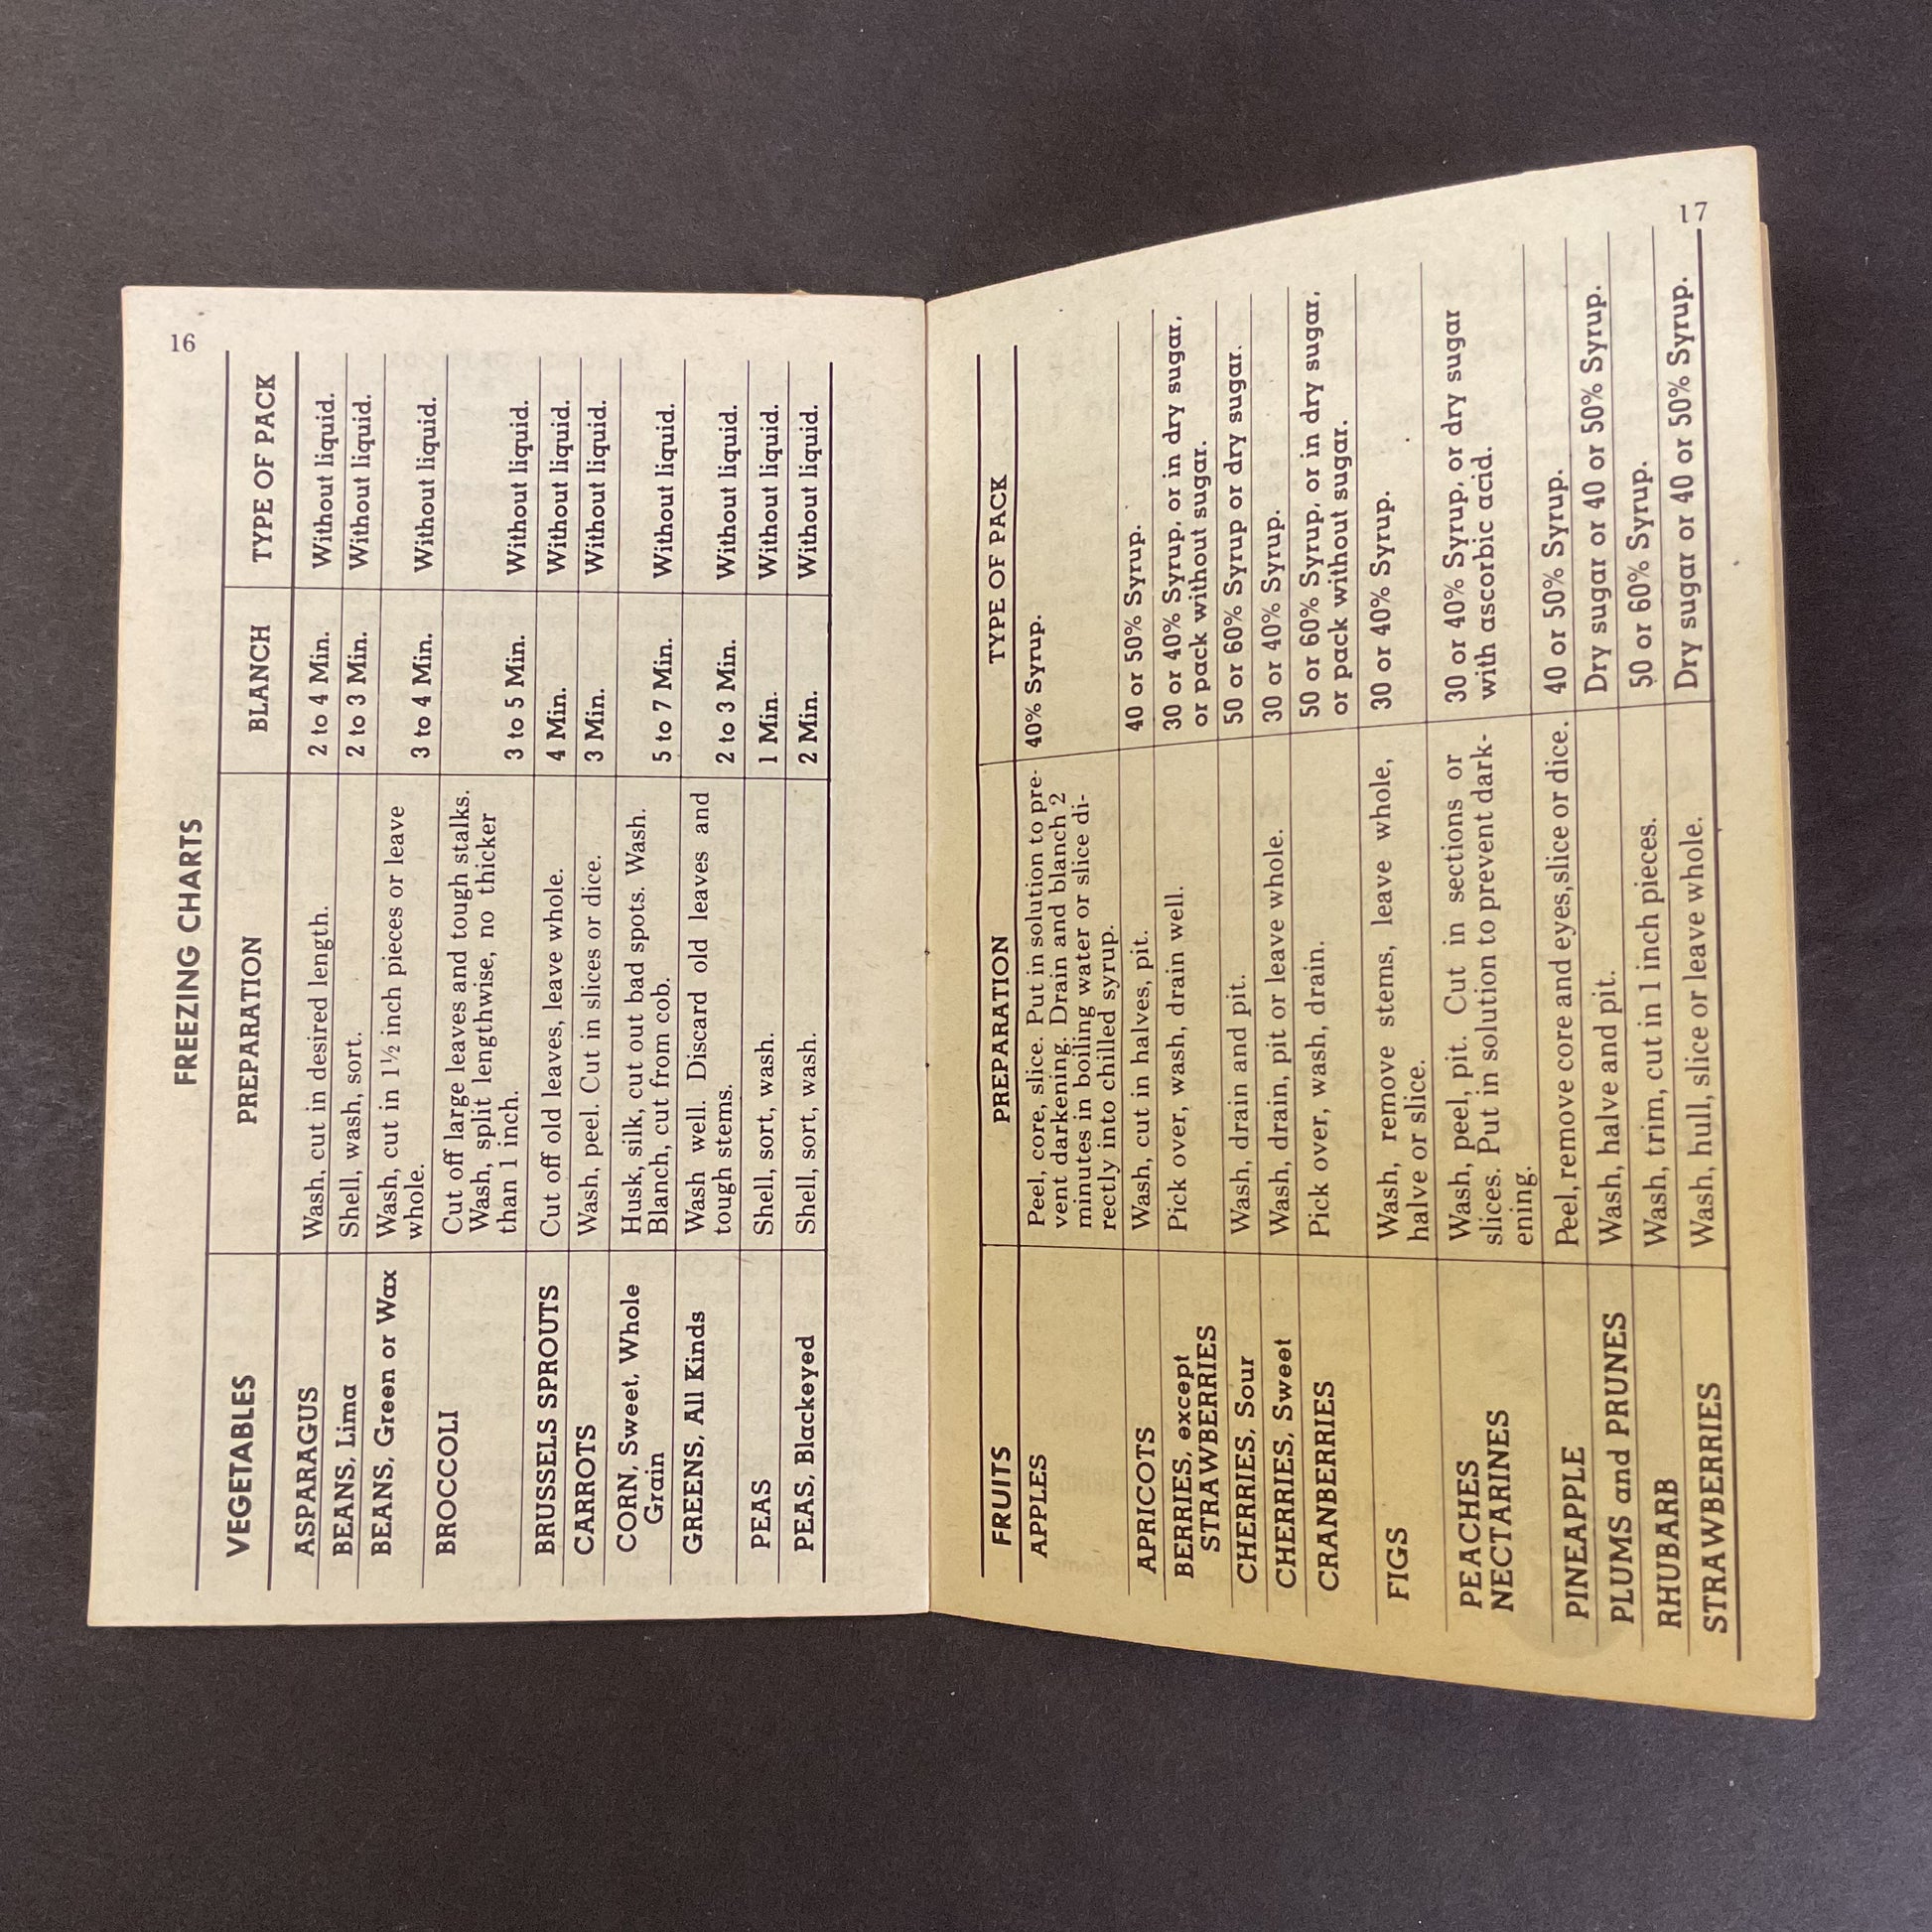 16
FREEZING CHARTS
VEGETABLES PREPARATION BLANCH TYPE OF PACK
ASPARAGUS Wash, cut in desired length. 2 to 4 Min. Without liquid.
BEANS, Lima Shell, wash, sort. 2 to 3 Min. Without liquid.
BEANS, Green or Wax Wash, cut in 1½ inch pieces or leave
whole. 3 to 4 Min. Without liquid.
BROCCOLI Cut off large leaves and tough stalks.
Wash, split lengthwise, no thicker
than 1 inch. 3 to 5 Min. Without liquid.
BRUSSELS SPROUTS Cut off old leaves, leave whole. 4 Min. Without liquid.
CARROTS Wash, peel. Cut in slices or dice. 3 Min. Without liquid.
CORN, Sweet, Whole Husk, silk, cut out bad spots. Wash.
Grain Blanch, cut from cob. 5 to 7 Min. Without liquid.
GREENS, All Kinds Wash well. Discard old leaves and
tough stems. 2 to 3 Min. Without liquid.
PEAS Shell, sort, wash. 1 Min. Without liquid.
PEAS, Blackeyed Shell, sort, wash. 2 Min. Without liquid.
FRUITS PREPARATION TYPE OF PACK
APPLES Peel, core, slice. Put in solution to pre- 40% Syrup.
vent darkening. Drain and blanch 2
minutes in boiling water or slice di-
rectly into chilled syrup.
APRICOTS Wash, cut in halves, pit. 40 or 50% Syrup.
BERRIES, except Pick over, wash, drain well. 30 or 40% Syrup, or in dry sugar,
STRAWBERRIES or pack without sugar.
CHERRIES, Sour Wash, drain and pit. 50 or 60% Syrup or dry sugar.
CHERRIES, Sweet Wash, drain, pit or leave whole. 30 or 40% Syrup.
CRANBERRIES Pick over, wash, drain. 50 or 60% Syrup, or in dry sugar,
or pack without sugar.
FIGS Wash, remove stems, leave whole, 30 or 40% Syrup.
halve or slice.
PEACHES Wash, peel, pit. Cut in sections or 30 or 40% Syrup, or dry sugar
NECTARINES slices. Put in solution to prevent dark- with ascorbic acid.
ening.
PINEAPPLE Peel, remove core and eyes, slice or dice. 40 or 50% Syrup.
PLUMS and PRUNES Wash, halve and pit. Dry sugar or 40 or 50% Syrup.
RHUBARB Wash, trim, cut in 1 inch pieces. 50 or 60% Syrup.
STRAWBERRIES Wash, hull, slice or leave whole. Dry sugar or 40 or 50% Syrup.
17